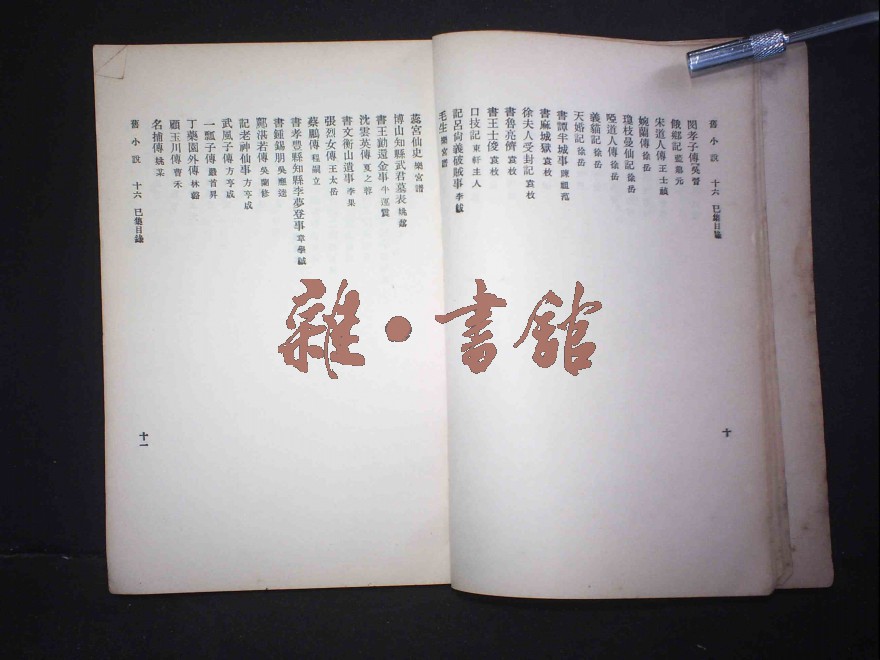 舊小說　十六　巳集目錄
閔孝子傳 吳晉
俄鄰記 藍鼎元
宋道人傳 王士禎
婉蘭傳 徐岳
瓊枝曼仙記 徐岳
啞道人傳 徐岳
義貓記 徐岳
天婚記 徐岳
書譚半城事 陳鼎
書麻城獄 袁枚
徐夫人受封記 袁枚
書魯亮儕 袁枚
書王士俊 袁枚
口技記 東軒主人
記呂尙義破賊事 李紱
毛生 樂宮譜
十
蕊宮仙史 樂宮譜
博山知縣武君墓表 姚鼐
書王勤還金事 牛運震
沈雲英傳 夏之蓉
書文衡山遺事 李果
張烈女傳 王太岳
蔡鵬傳 程嗣立
書孝豐縣知縣李夢登事 章學誠
書鍾錫朋 吳應逵
鄺湛若傳 吳蘭修
記老神仙事 方亨咸
武風子傳 方亨咸
一瓢子傳 嚴首昇
丁藥園外傳 林璐
顧玉川傳 曹禾
名捕傳 姚某
舊小說　十六　巳集目錄
十一
雜・書館